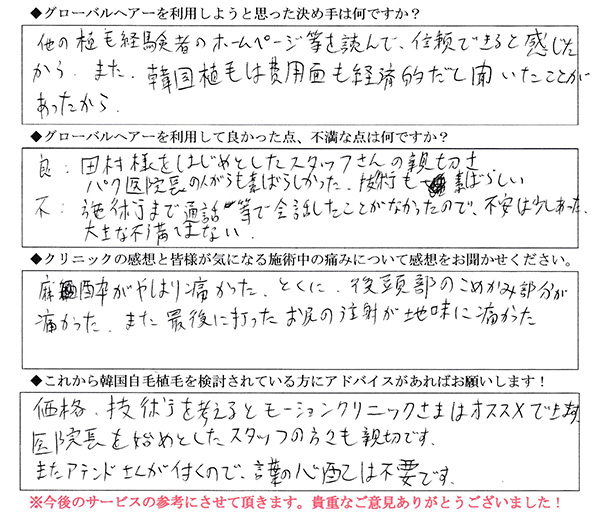 ◆グローバルヘアーを利用しようと思った決め手は何ですか？
他の植毛経験者のホームページ等を読んで、信頼できると感じた
から。また、韓国植毛は費用面も経済的だと聞いたことが
あったから。
◆グローバルヘアーを利用して良かった点、不満な点は何ですか？
良：田村様をはじめとしたスタッフさんの親切さ
パク医院長の人がらも素ばらしかった。技術も素ばらしい
不：施術まで通話等で会話したことがなかったので、不安は少しあった。
大きな不満はない。
◆クリニックの感想と皆様が気になる施術中の痛みについて感想をお聞かせください。
麻酔がやはり痛かった。とくに、後頭部のこめかみ部分が
痛かった。また最後に打ったお尻の注射が地味に痛かった
◆これから韓国自毛植毛を検討されている方にアドバイスがあればお願いします！
価格、技術を考えるとモーションクリニックさまはオススメできます。
医院長を始めとしたスタッフの方々も親切です。
またアテンドさんが付くので、言葉の心配は不要です。
※今後のサービスの参考にさせて頂きます。貴重なご意見ありがとうございました！